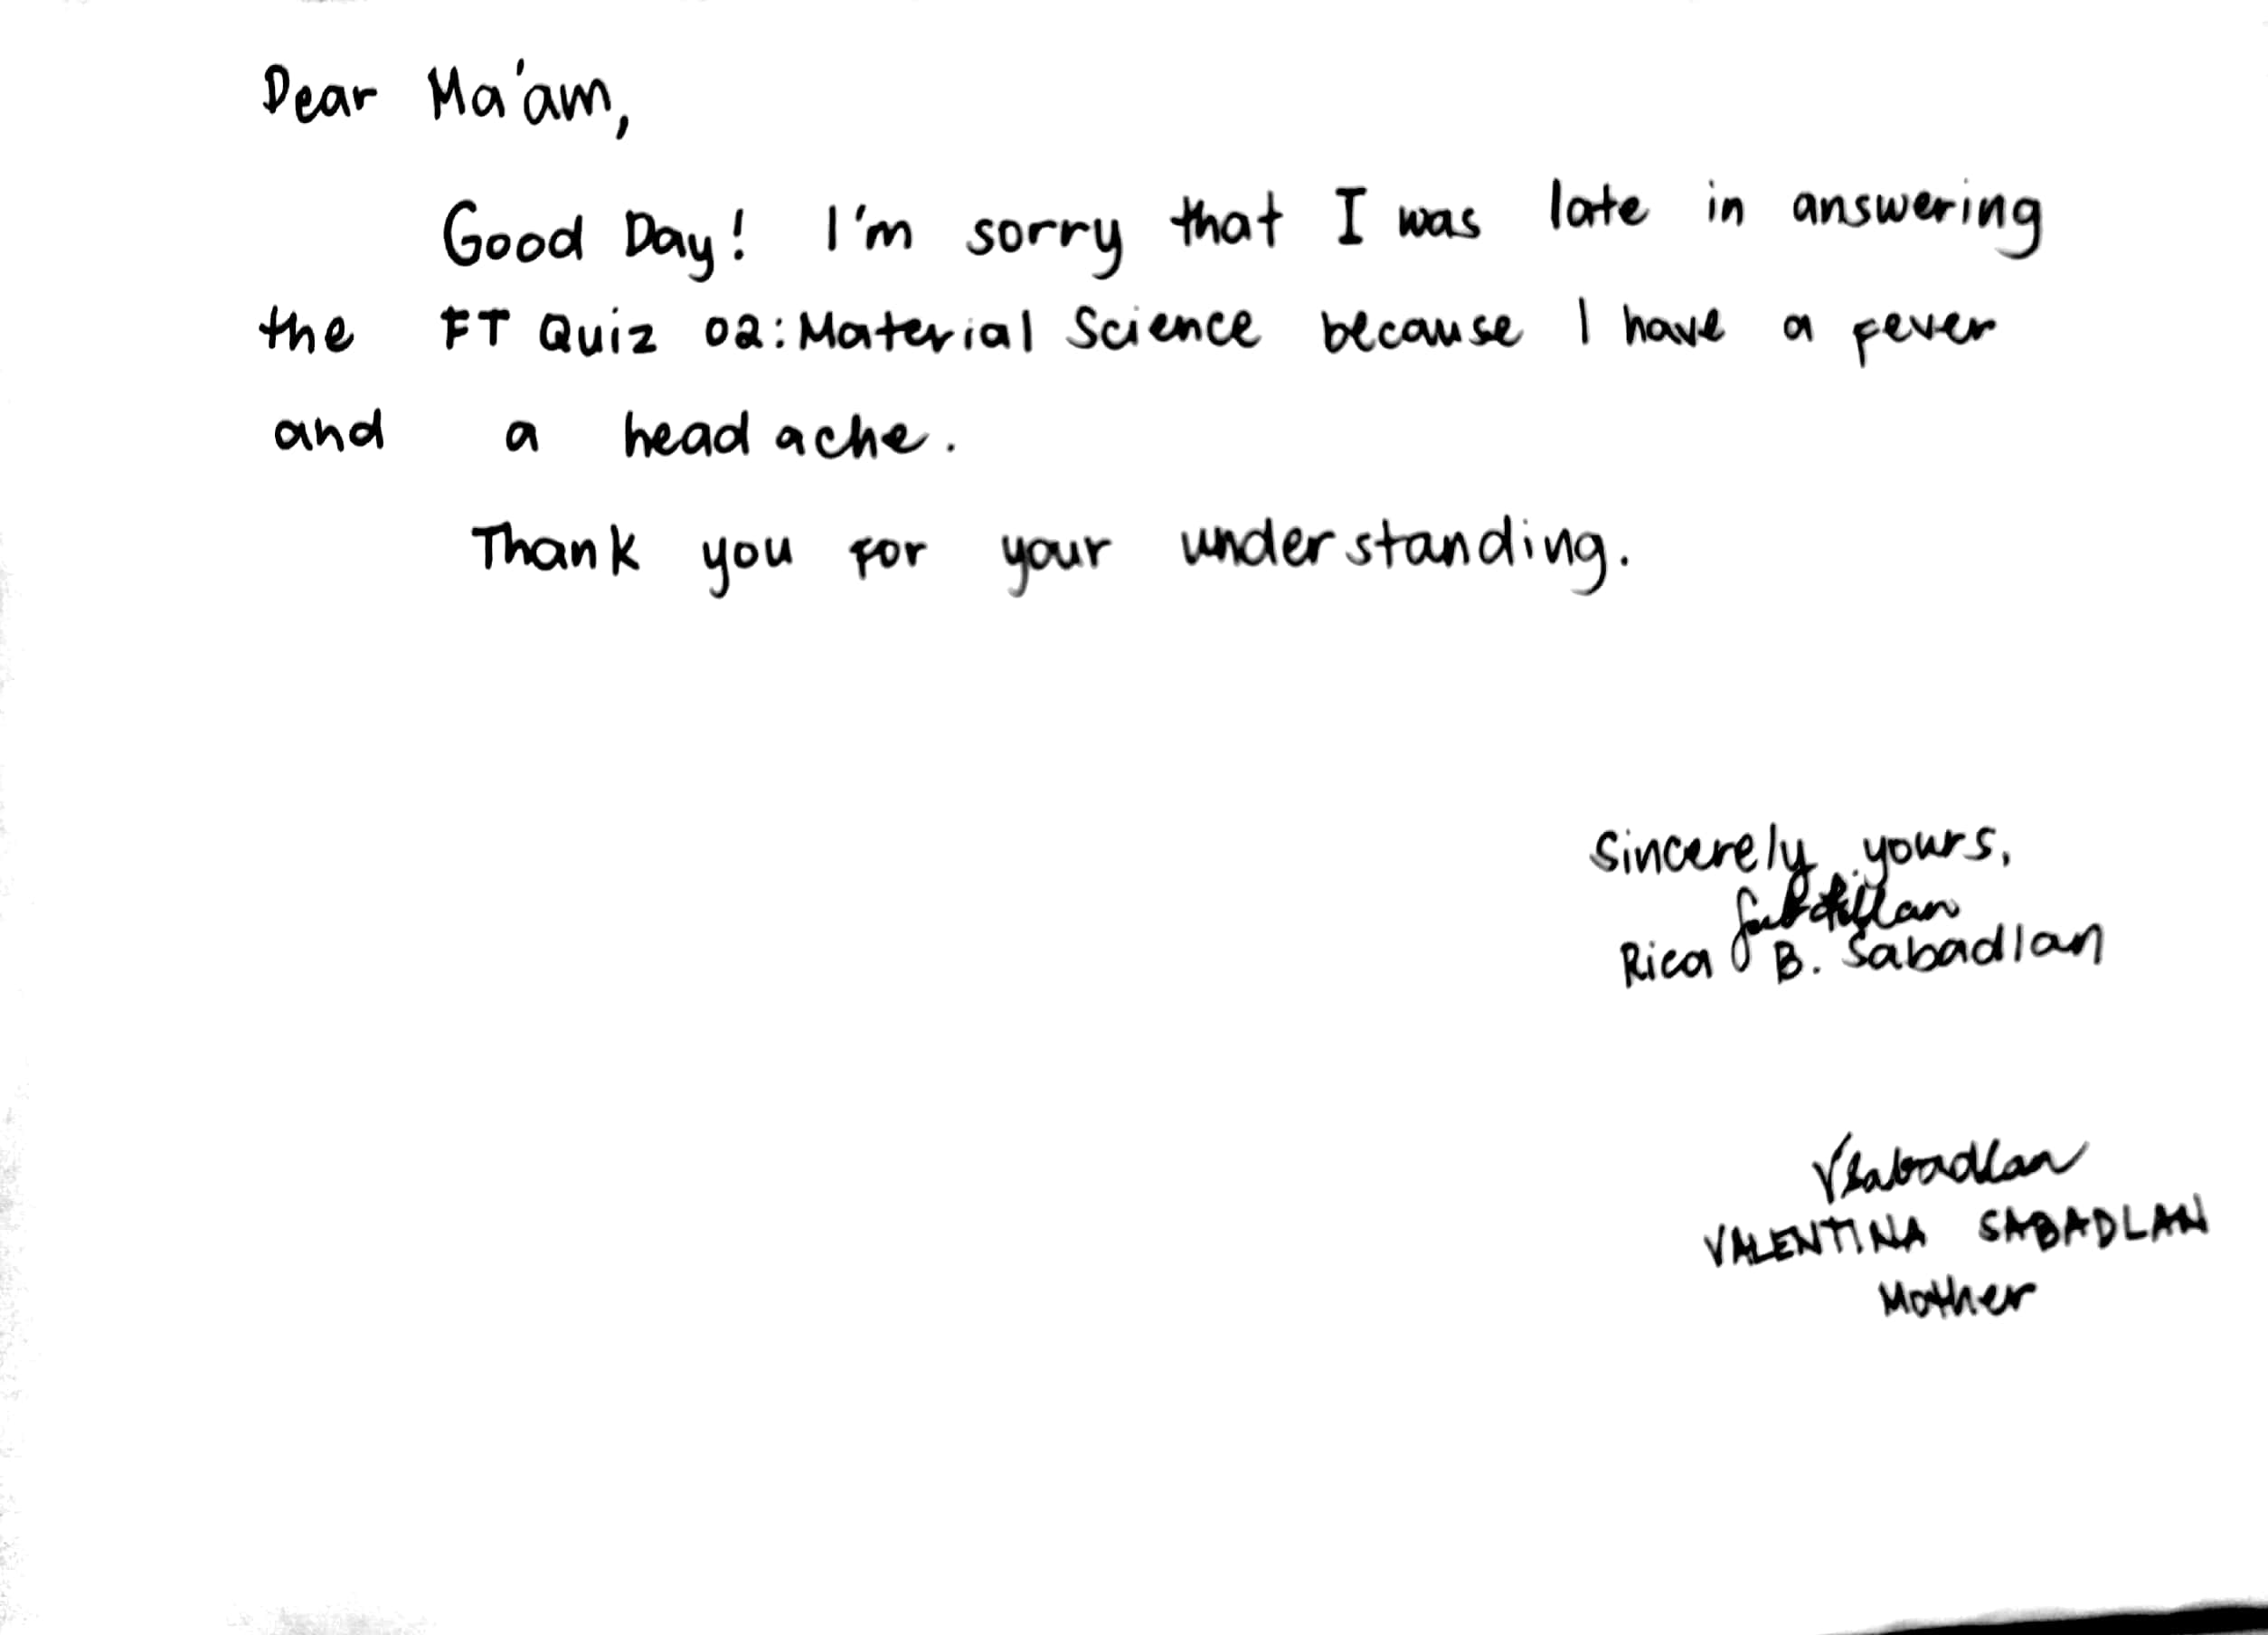 Dear Ma'am,
Good Day! I'm sorry that I was late in answering
the FT Quiz 02: Material Science because I have a fever
and a headache.
Thank you for your understanding.
Sincerely yours,
Rica B. Sabadlan
VSabadlan
VALENTINA SABADLAN
Mother